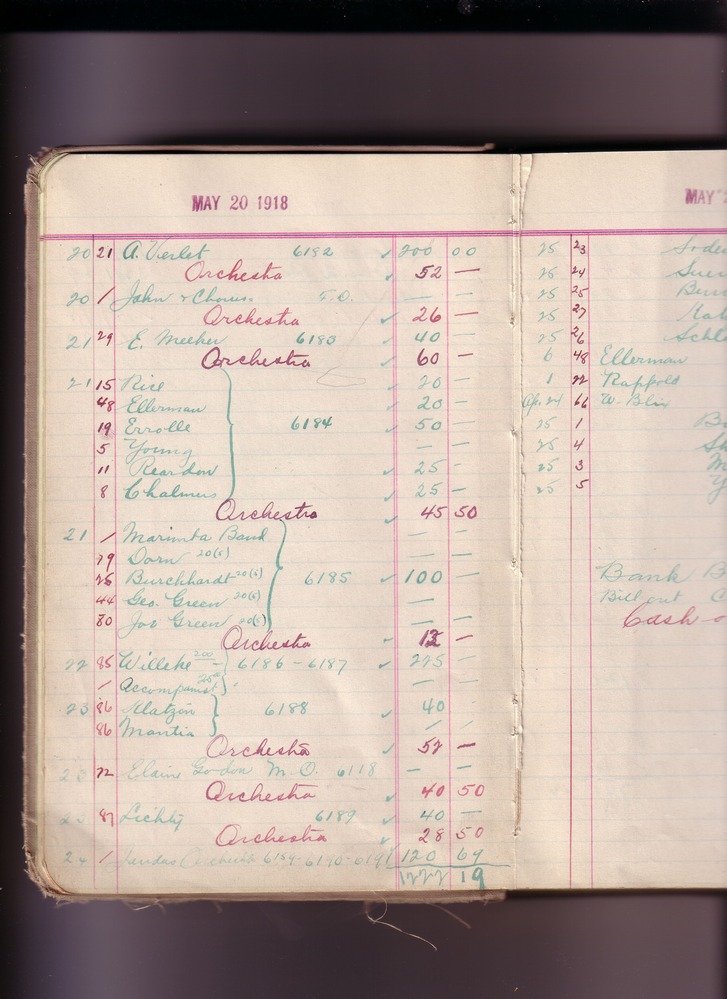 MAY 20 1918
20 21 A. Verlet 6182 ✓ 200 00
Orchestra 52 —
20 / John & Chorus T.O. — —
Orchestra ✓ 26 —
21 29 E. Meeker 6183 ✓ 40 —
Orchestra ✓ 60 —
21 15 Rice ✓ 20 —
48 Ellerman ✓ 20 —
19 Errolle 6184 ✓ 50 —
5 Young — —
11 Reardon ✓ 25 -
8 Chalmers ✓ 25 —
Orchestra ✓ 45 50
21 / Marimba Band — —
79 Dorn 20(5) — —
Burckhardt 20(5) 6185 ✓ 100 —
44 Geo. Green 20(5) —
80 Joe Green 20(5) — —
Orchestra 13 —
22 85 Willeke 200 — 6186 - 6187 ✓ 225 —
/ Accompanist 25 00 — —
23 86 Klatzin 6188 ✓ 40
86 Mantia
Orchestra ✓ 52 —
23 72 Elaine Gordon M.O. 6118 — —
Orchestra ✓ 40 50
23 87 Lichty 6189 ✓ 40 —
Orchestra ✓ 28 50
24 / Jaudas Orchestra 6139-6190-6191 120 69
1222 19
MAY
25 23
26 24
25 25
25 27
25 26
6 48 Ellerman
1 22 Rappold
Ap. 24 66 W. Blix
25 1
25 4
25 3
25 5
Bank B
Bill out
Cash